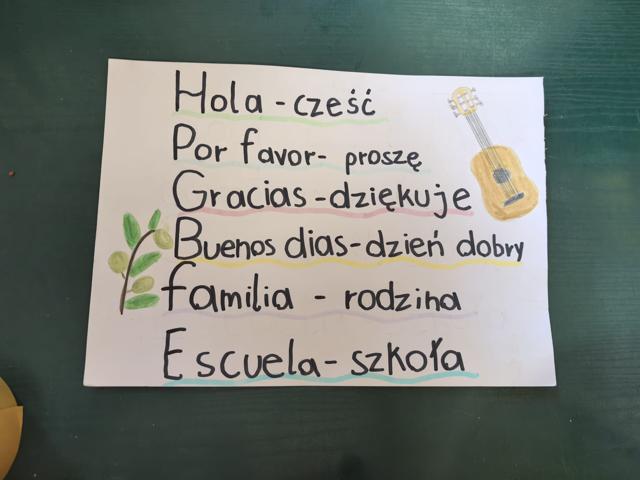 Hola - cześć
Por favor - proszę
Gracias - dziękuje
Buenos dias - dzień dobry
familia - rodzina
Escuela - szkoła